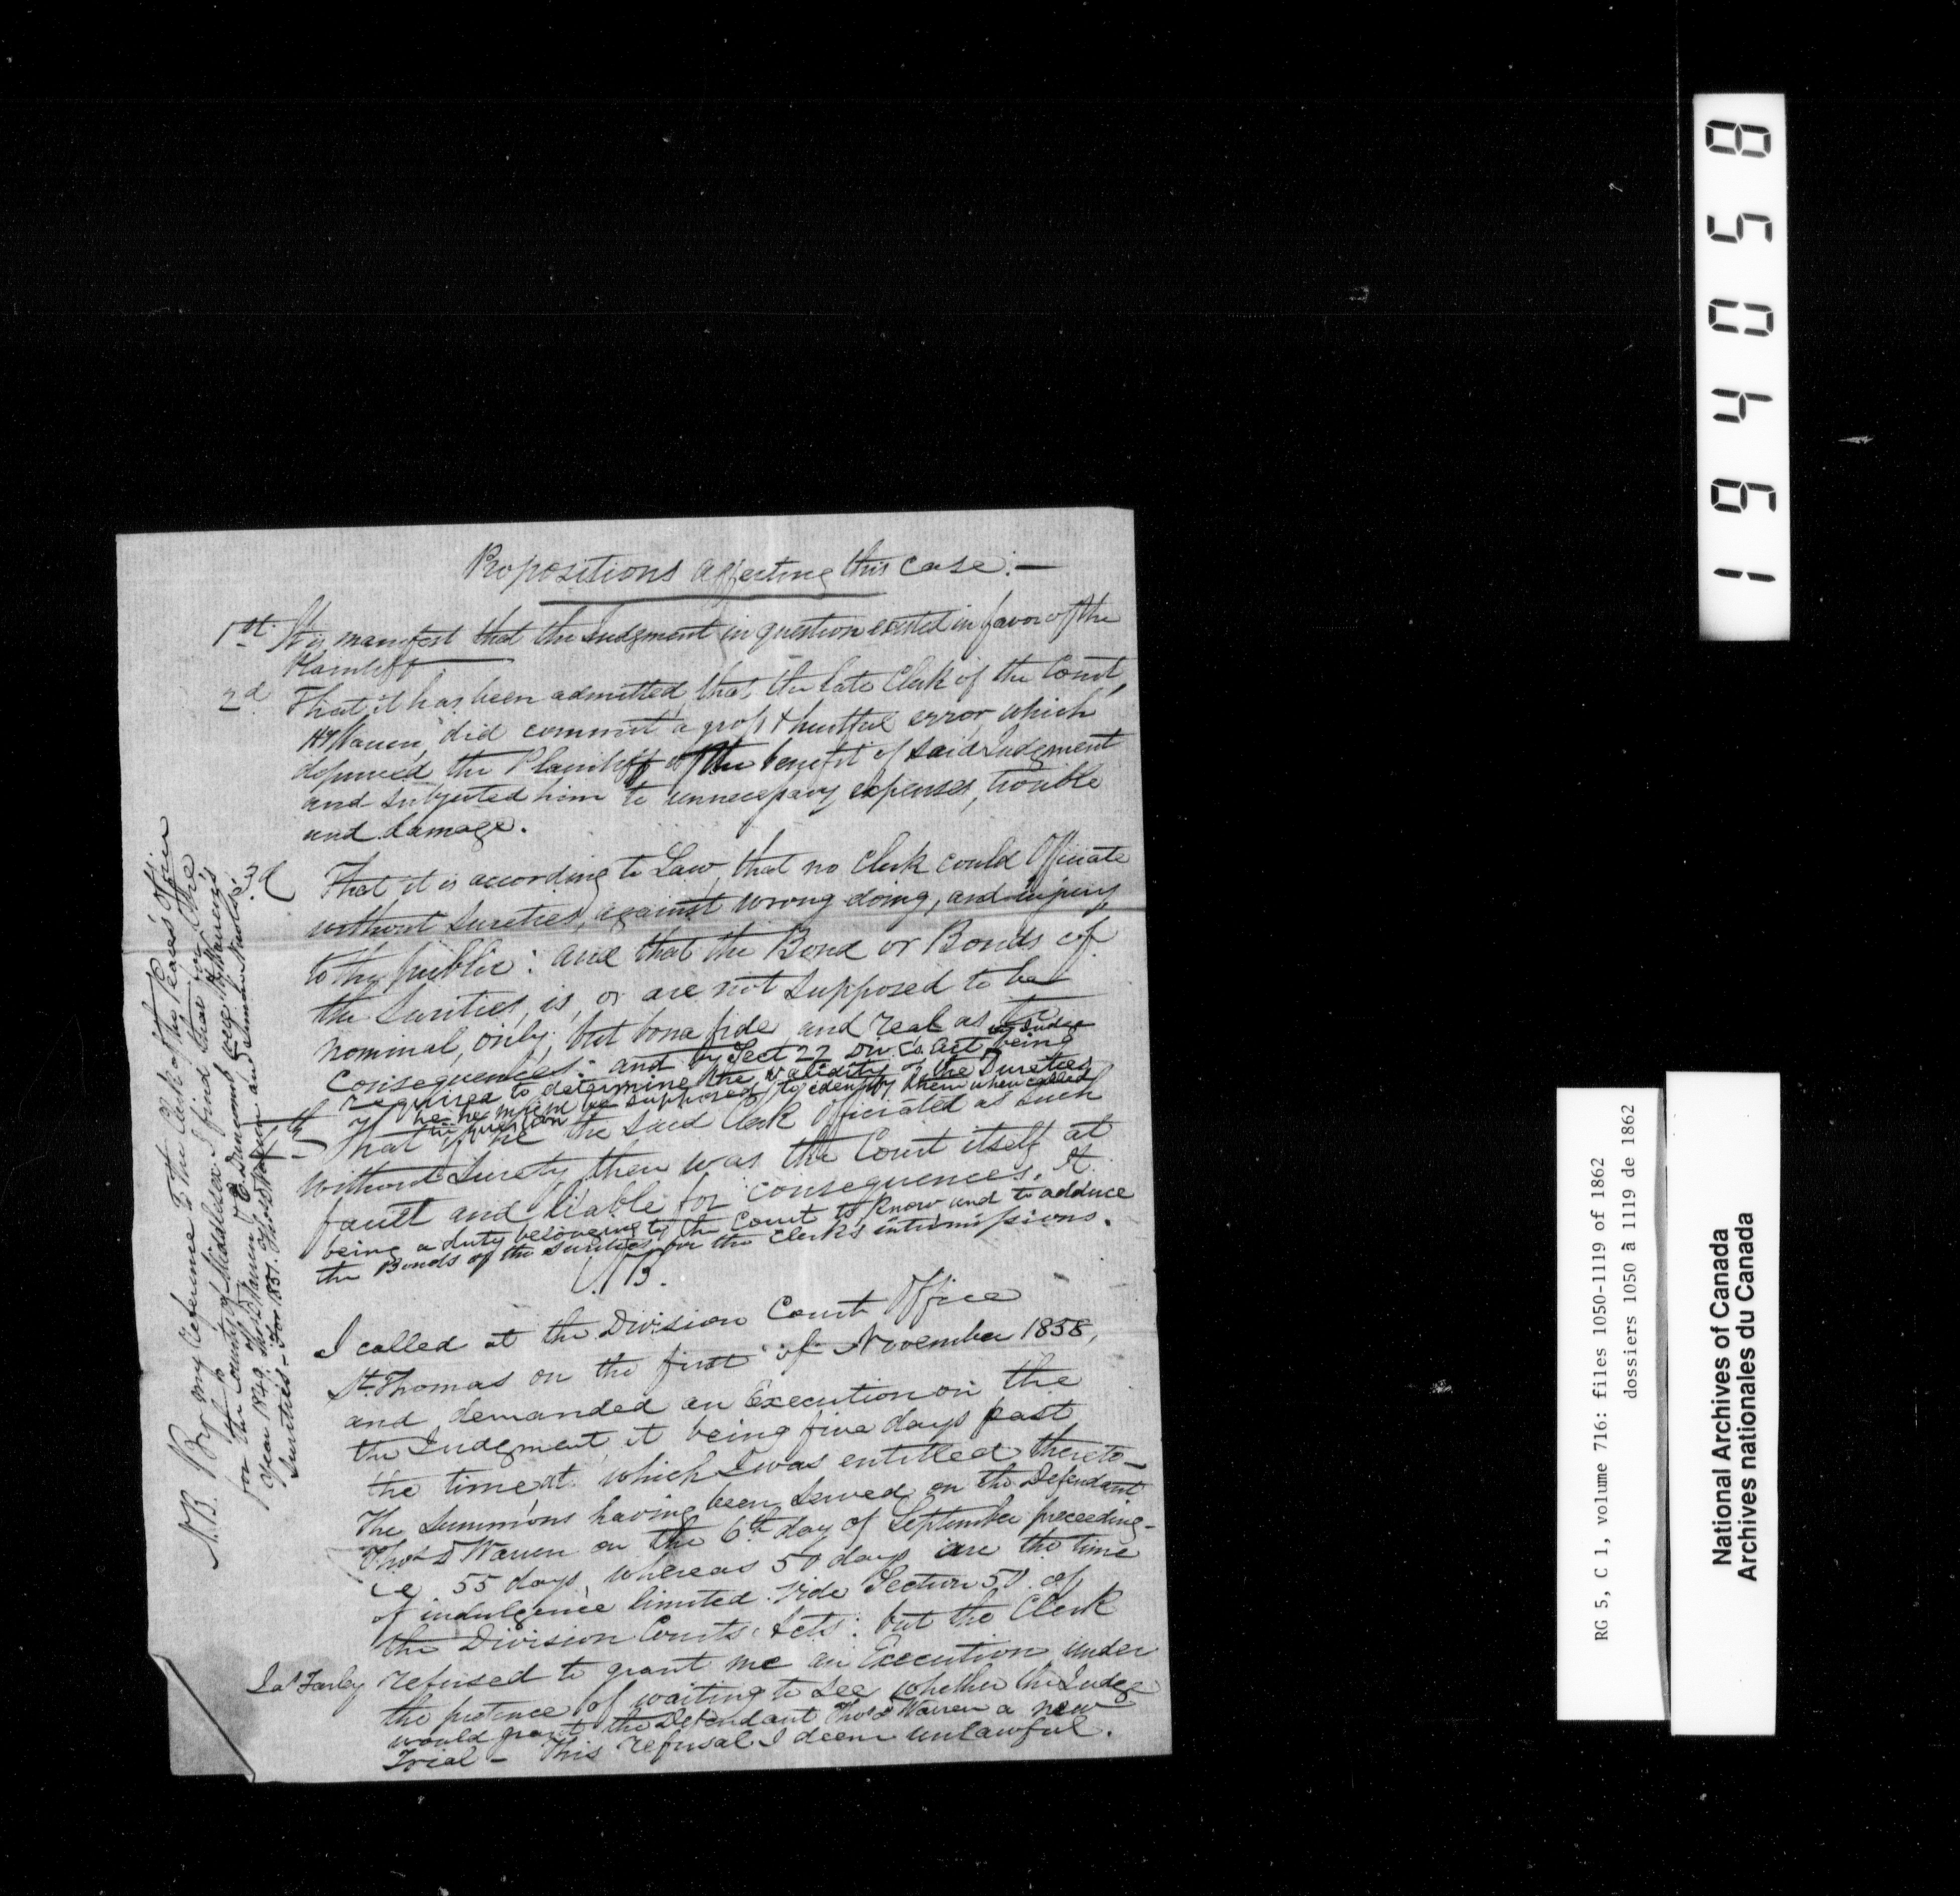 Propositions affecting this case:—
1st. It is manifest that the Judgment in question existed in favor of the
Plaintiff
2d That it has been admitted, that the late Clerk of the Court,
Warren, did commit a gross & hurtful error, which
deprived the Plaintiff of the benefit of said Judgment
and subjected him to unnecessary expenses, trouble
and damage.
3d That it is according to Law, that no Clerk could Officiate
without Sureties, against wrong doing, and injury
to thy public: and that the Bond or Bonds of
the Sureties, is, or are not supposed to be
nominal, only; but bona fide and real as to
consequences: and by Sect 22 Div. Cs. Act being
required to determine the validity of the Sureties
he be supposed to identify them when called
in question
4th That if he the said Clerk Officiated as such
without Surety, then was the Court itself at
fault and liable for consequences. It
being a duty belonging to the Court to know and to adduce
the Bonds of the Sureties for the Clerk's intromissions.
N.B.
I called at the Division Court Office
St. Thomas on the first of November 1858,
and demanded an Execution on the
the Judgment, it being five days past
the time at which I was entitled thereto—
The Summons having been served on the Defendant
Thos. D Warren on the 6th day of September preceeding—
i.e. 55 days, whereas 50 days are the time
of indulgence limited. Vide Section 50 of
the Division Courts Acts: but the Clerk
Jas Farley refused to grant me an Execution under
the pretence of waiting to see whether the Judge
would grant the Defendant Thos D Warren a new
Trial — This refusal I deem unlawful.
N.B. By my reference to the Clerk of the Peace's Office
for the County of Middlesex I find that for the
year 1849. Thos D Warren & E. Duncomb were Warren's
Sureties — For 1851. Thos D Warren and
194058
RG 5, C 1, volume 716: files 1050-1119 of 1862
dossiers 1050 à 1119 de 1862
National Archives of Canada
Archives nationales du Canada